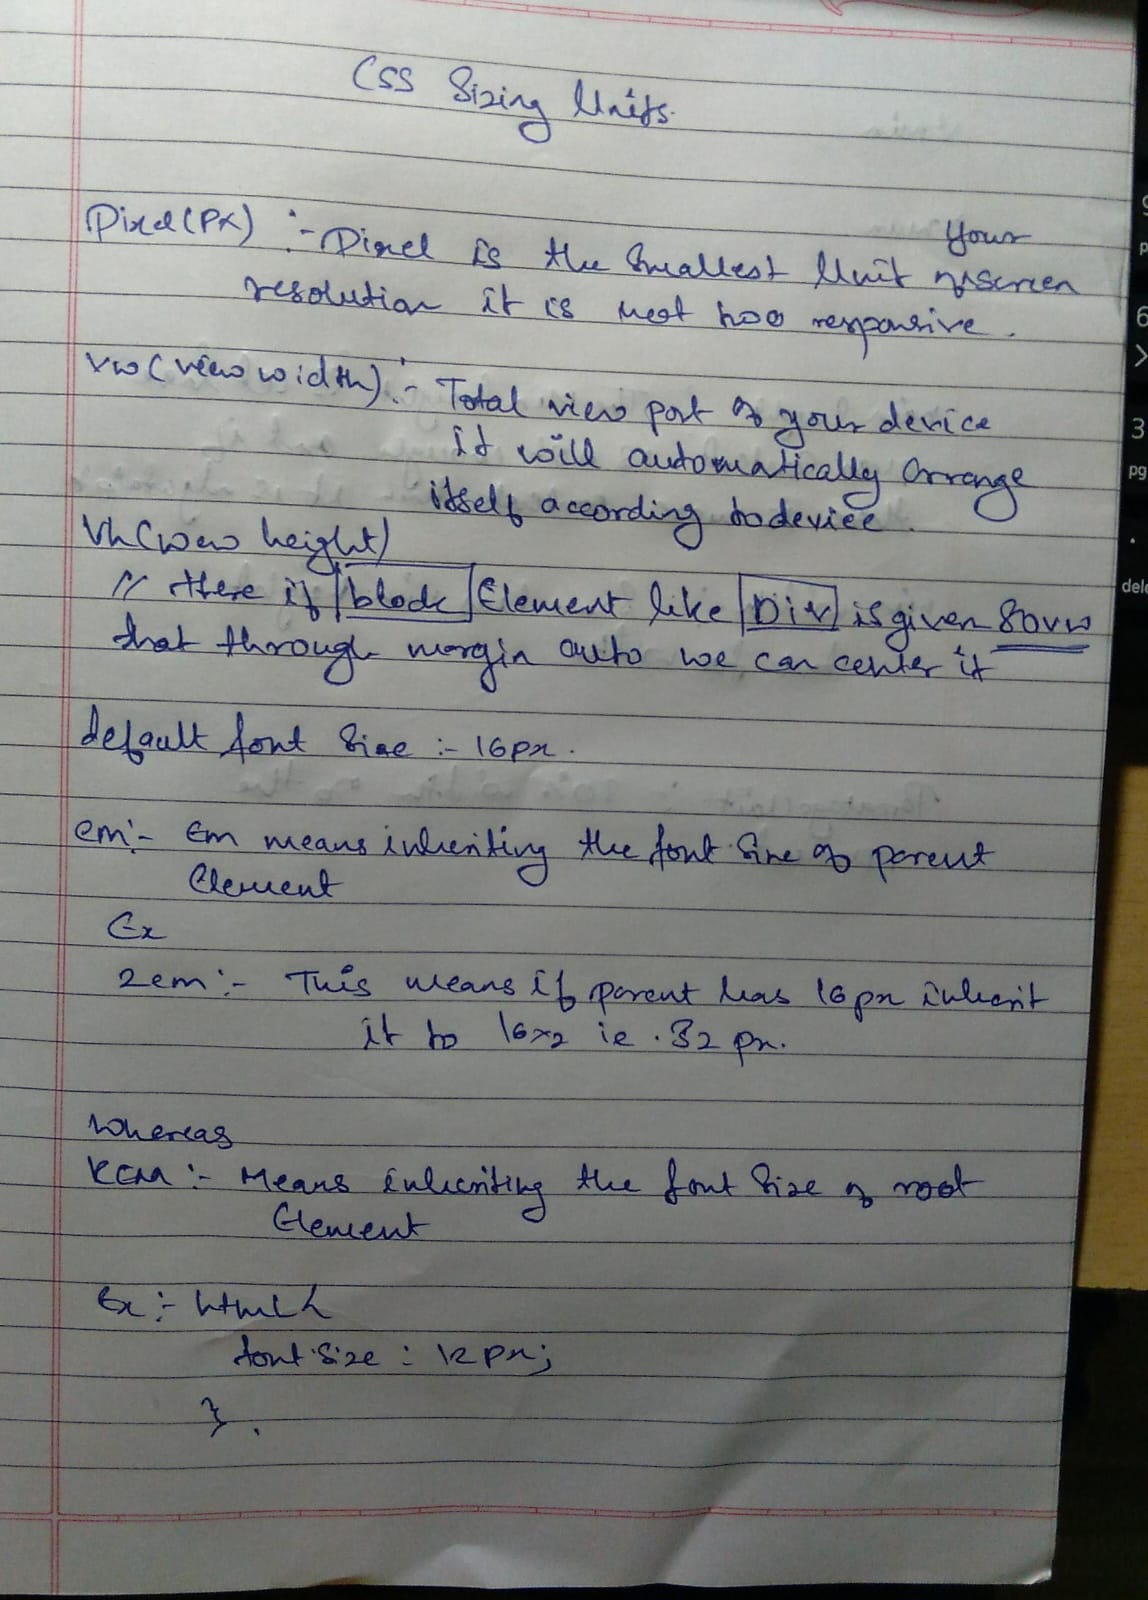 CSS Sizing Units.
Pixel(Px) :- Pixel is the Smallest Unit of Your screen
resolution it is not too responsive.
vw(view width) :- Total view port of your device
it will automatically arrange
itself according to device.
Vh(view height)
// Here if block Element like Div is given 80vw
that through margin auto we can center it
default font size :- 16px.
em:- Em means inheriting the font size of parent
Element
Ex
2em:- This means if parent has 16px inherit
it to 16x2 ie. 32 px.
Whereas
REM:- Means inheriting the font size of root
Element
Ex:- html {
font-size : 12px;
}.
6
>
3
pg
dele